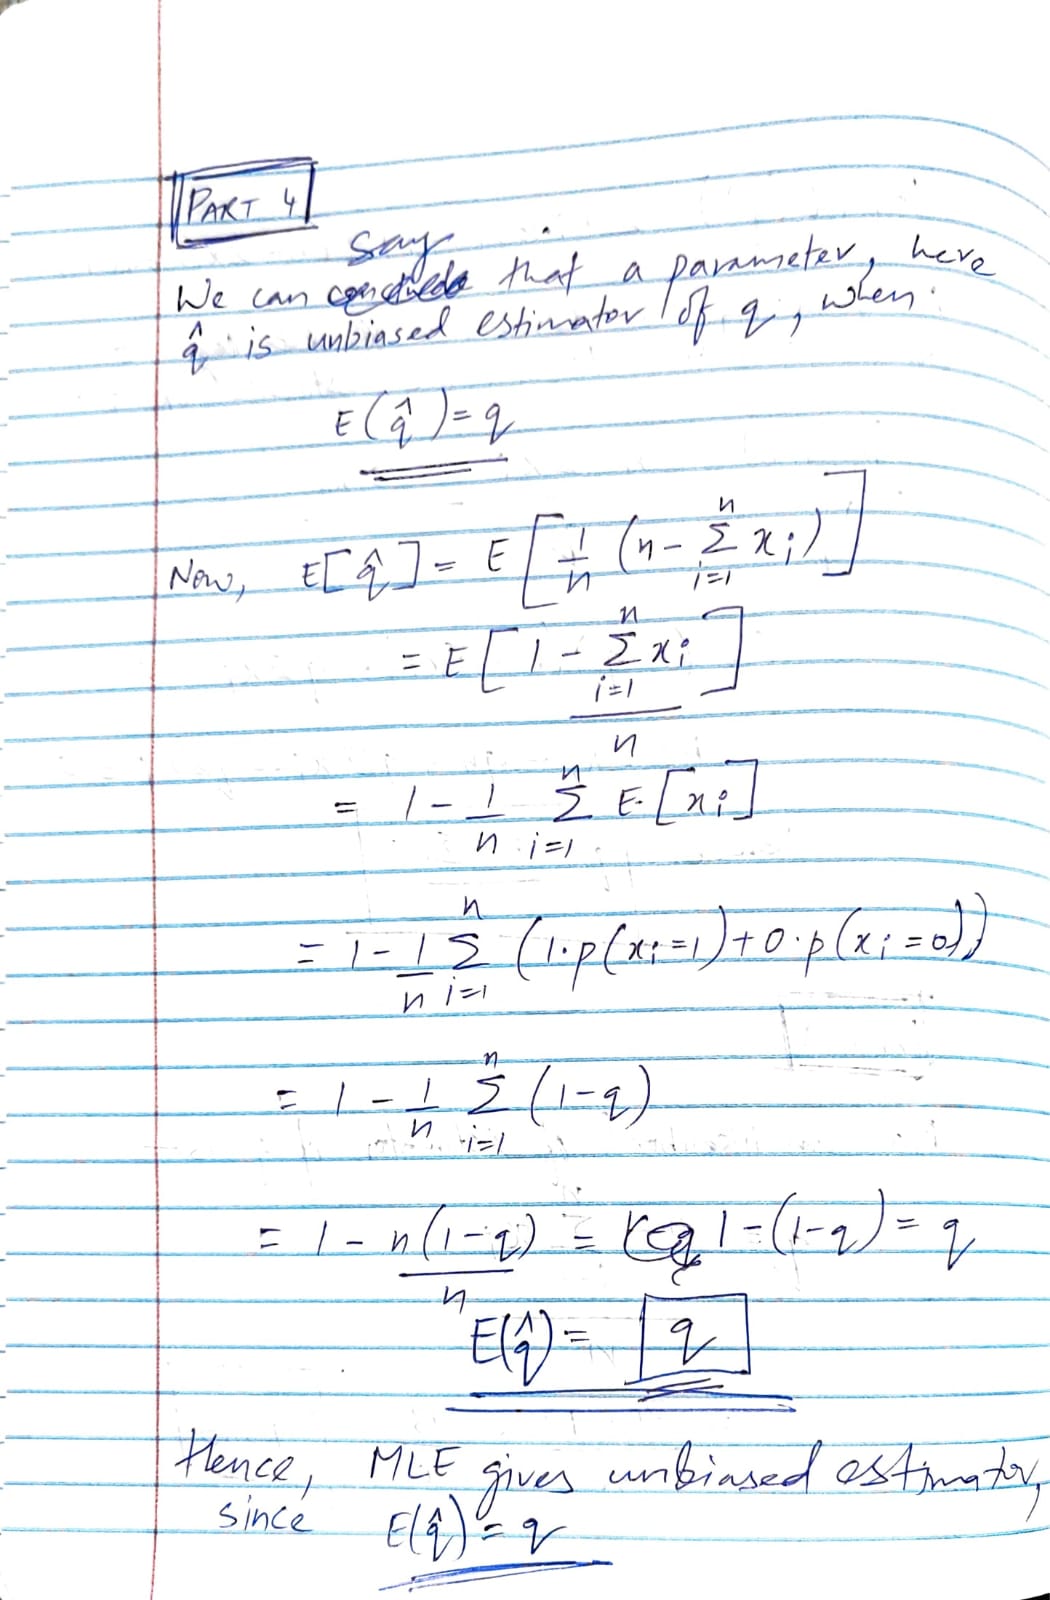 PART 4
say
We can that a parameter, here
q̂ is unbiased estimator of q, when
E(q̂) = q
Now, E[q̂] = E[1/n (n - Σ_{i=1}^{n} x_i)]
= E[1 - Σ_{i=1}^{n} x_i / n]
= 1 - 1/n Σ_{i=1}^{n} E[x_i]
= 1 - 1/n Σ_{i=1}^{n} (1·p(x_i=1) + 0·p(x_i=0))
= 1 - 1/n Σ_{i=1}^{n} (1-q)
= 1 - n(1-q)/n = 1-(1-q) = q
E(q̂) = q
Hence, MLE gives unbiased estimator,
since E(q̂) = q